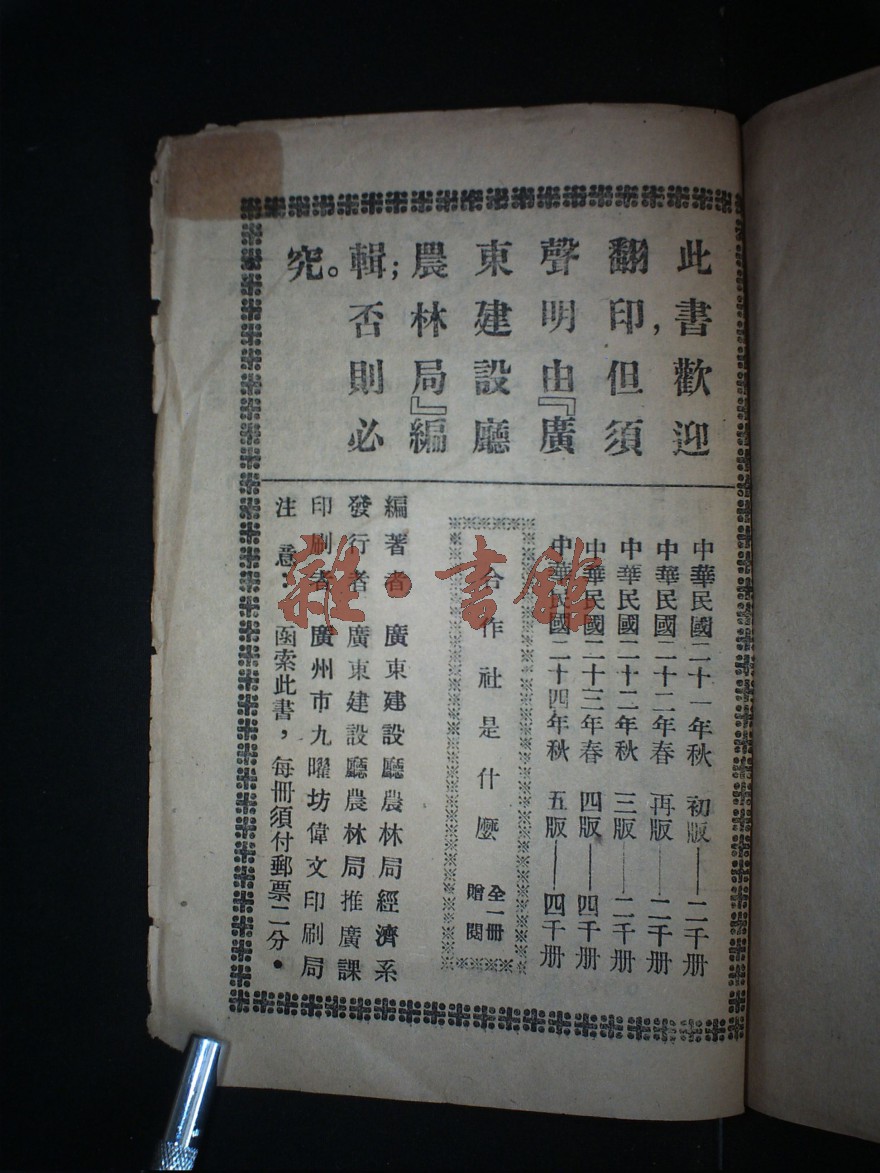 此書歡迎
翻印,但須
聲明由『廣
東建設廳
農林局』編
輯;否則必
究。
中華民國二十一年秋 初版——二千册
中華民國二十二年春 再版——二千册
中華民國二十二年秋 三版——二千册
中華民國二十三年春 四版——四千册
中華民國二十四年秋 五版——四千册
合作社是什麼
全一冊
贈閱
編著者 廣東建設廳農林局經濟系
發行者 廣東建設廳農林局推廣課
印刷者 廣州市九曜坊偉文印刷局
注意:函索此書,每冊須付郵票二分。
雜·書館